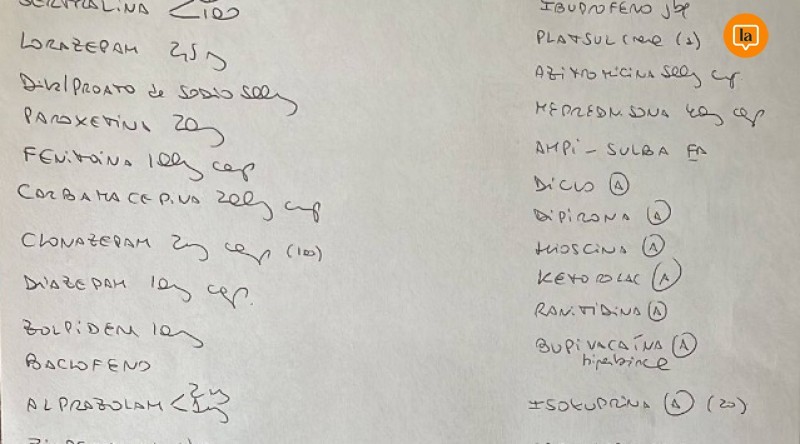 SERTRALINA < 100
LORAZEPAM 2,5 mg
DIVALPROATO de SODIO 500mg
PAROXETINA 20mg
FENITOINA 100mg cap
CARBAMACEPINA 200mg cap
CLONAZEPAM 2mg cap (100)
DIAZEPAM 10mg cap.
ZOLPIDEM 10mg
BACLOFENO
ALPRAZOLAM < 2mg
1mg
IBUPROFENO jbe
PLATSUL crema (2)
AZITROMICINA 500mg cap
MEPREDNISONA 40mg cap
AMPI - SULBA FA
DICLO A
DIPIRONA A
HIOSCINA A
KETOROLAC A
RANITIDINA A
BUPIVACAÍNA A
ISOXUPRINA A (20)
la